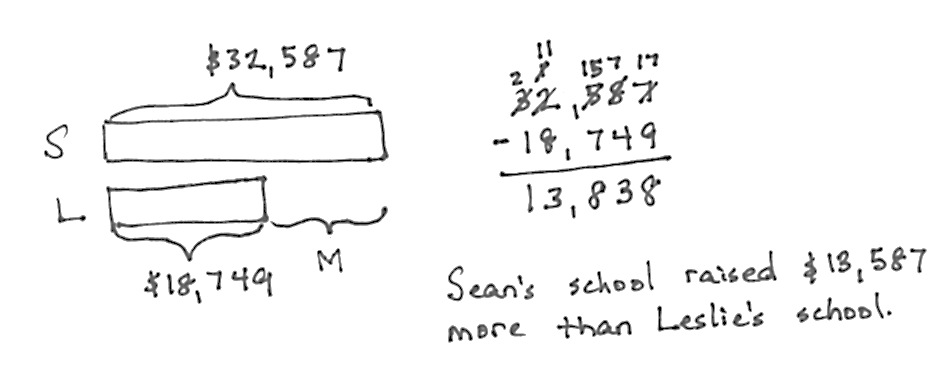 $32,587
S
L
$18,749
M
11
2 1 15 7 17
32,587
-18,749
13,838
Sean's school raised $13,587
more than Leslie's school.